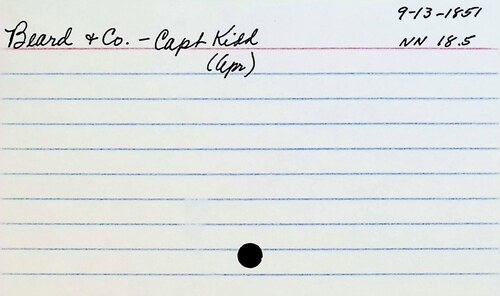 9-13-1851
Beard & Co. - Capt Kidd NN 18.5
(Apr)